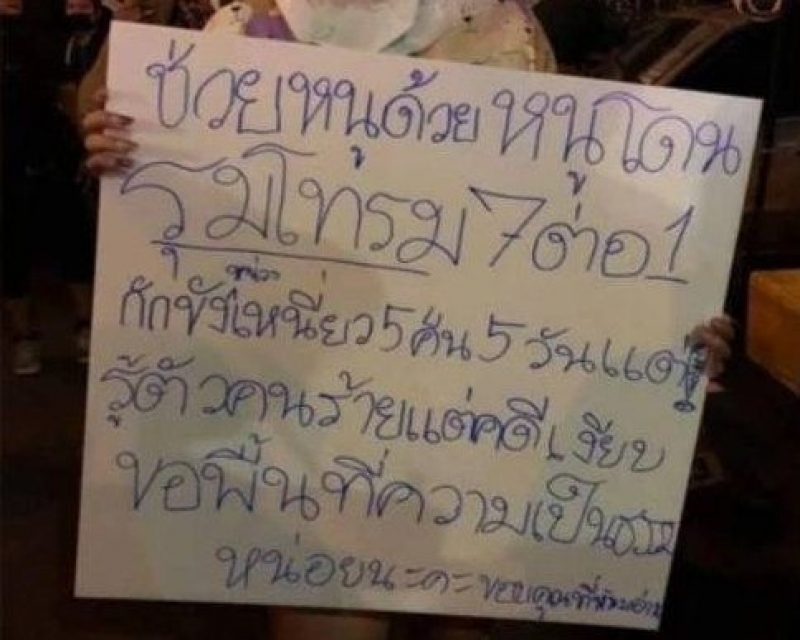 ช่วยหนูด้วย หนูโดน
รุมโทรม 7 ต่อ 1
กักขังหน่วงเหนี่ยว 5 คืน 5 วัน แต่
รู้ตัวคนร้ายแต่คดีเงียบ
ขอพื้นที่ความเป็นธรรม
หน่อยนะคะ ขอบคุณที่